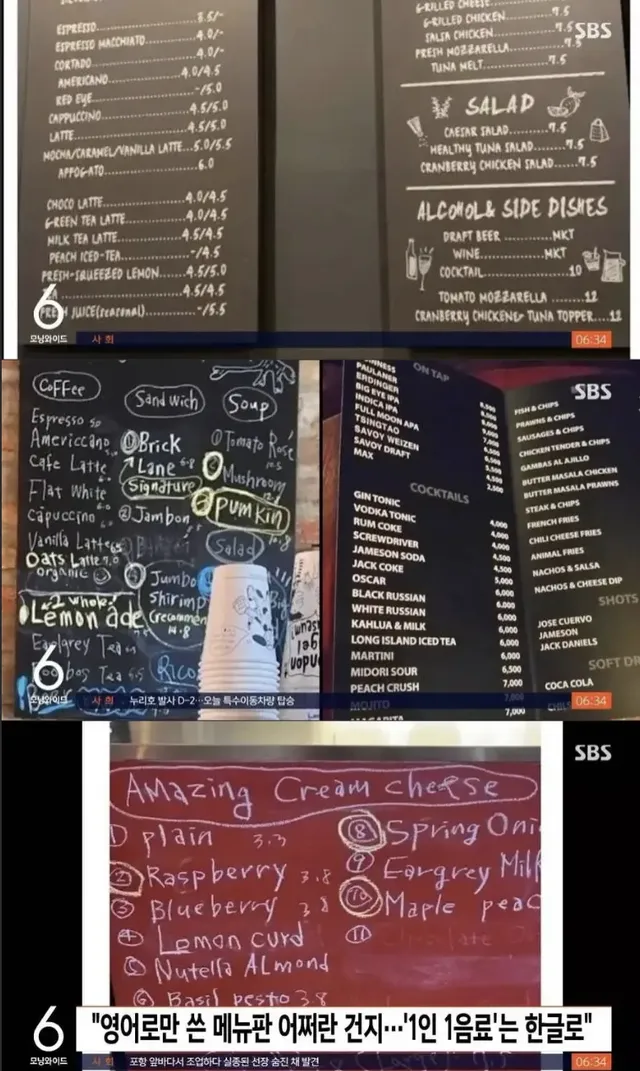 ESPRESSO 3.5/-
ESPRESSO MACCHIATO 4.0/-
CORTADO 4.0/-
AMERICANO 4.0/4.5
RED EYE -/5.0
CAPPUCCINO 4.5/5.0
LATTE 4.5/5.0
MOCHA/CARAMEL/VANILLA LATTE 5.0/5.5
AFFOGATO 6.0
CHOCO LATTE 4.0/4.5
GREEN TEA LATTE 4.0/4.5
MILK TEA LATTE 4.5/4.5
PEACH ICED-TEA -/4.5
FRESH-SQUEEZED LEMON 4.5/5.0
4.5/4.5
FRESH JUICE(seasonal) -/5.5
GRILLED CHEESE
GRILLED CHICKEN 7.5
SALSA CHICKEN 7.5
FRESH MOZZARELLA 7.5
TUNA MELT 7.5
SALAD
CAESAR SALAD 7.5
HEALTHY TUNA SALAD 7.5
CRANBERRY CHICKEN SALAD 7.5
ALCOHOL & SIDE DISHES
DRAFT BEER MKT
WINE MKT
COCKTAIL 10
TOMATO MOZZARELLA 12
CRANBERRY CHICKEN & TUNA TOPPER 12
SBS
6
모닝와이드
사회
06:34
Coffee
Espresso
Americcano
Cafe Latte
Flat White
Cappuccino
Vanilla Latte
Oats Latte 7.0
organic
2 whole!
Lemon ade
Earlgrey Tea
Tea
Sandwich
① Brick
Lane 6.8
Signature
② Jambon
④ Jumbo
Shirimp
(recommen
Rico
Soup
① Tomato Rosé
Mushroom
Pumkin
Salad
6
모닝와이드
사회
누리호 발사 D-2…오늘 특수이동차량 탑승
ON TAP
GUINNESS
PAULANER
ERDINGER
BIG EYE IPA
INDICA IPA
FULL MOON APA
TSINGTAO
SAVOY WEIZEN
SAVOY DRAFT
MAX 2,500
COCKTAILS
GIN TONIC 4,000
VODKA TONIC 4,000
RUM COKE 4,000
SCREWDRIVER 4,000
JAMESON SODA 4,500
JACK COKE 4,500
OSCAR 5,000
BLACK RUSSIAN 6,000
WHITE RUSSIAN 6,000
KAHLUA & MILK 6,000
LONG ISLAND ICED TEA 6,000
MARTINI 6,000
MIDORI SOUR 6,500
PEACH CRUSH 7,000
MOJITO 7,000
MAGARITA
FISH & CHIPS
PRAWNS & CHIPS
SAUSAGES & CHIPS
CHICKEN TENDER & CHIPS
GAMBAS AL AJILLO
BUTTER MASALA CHICKEN
BUTTER MASALA PRAWNS
STEAK & CHIPS
FRENCH FRIES
CHILI CHEESE FRIES
ANIMAL FRIES
NACHOS & SALSA
NACHOS & CHEESE DIP
SHOTS
JOSE CUERVO
JAMESON
JACK DANIELS
SOFT DR
COCA COLA
SBS
06:34
SBS
Amazing Cream cheese
① plain 3.3
② Raspberry 3.8
③ Blueberry 3.8
④ Lemon curd
⑤ Nutella Almond
⑥ Basil pesto 3.8
⑧ Spring Oni
⑨ Eargrey Milk
⑩ Maple peac
⑪
6
모닝와이드
"영어로만 쓴 메뉴판 어쩌란 건지…'1인 1음료'는 한글로"
사회
포항 앞바다서 조업하다 실종된 선장 숨진 채 발견
06:34